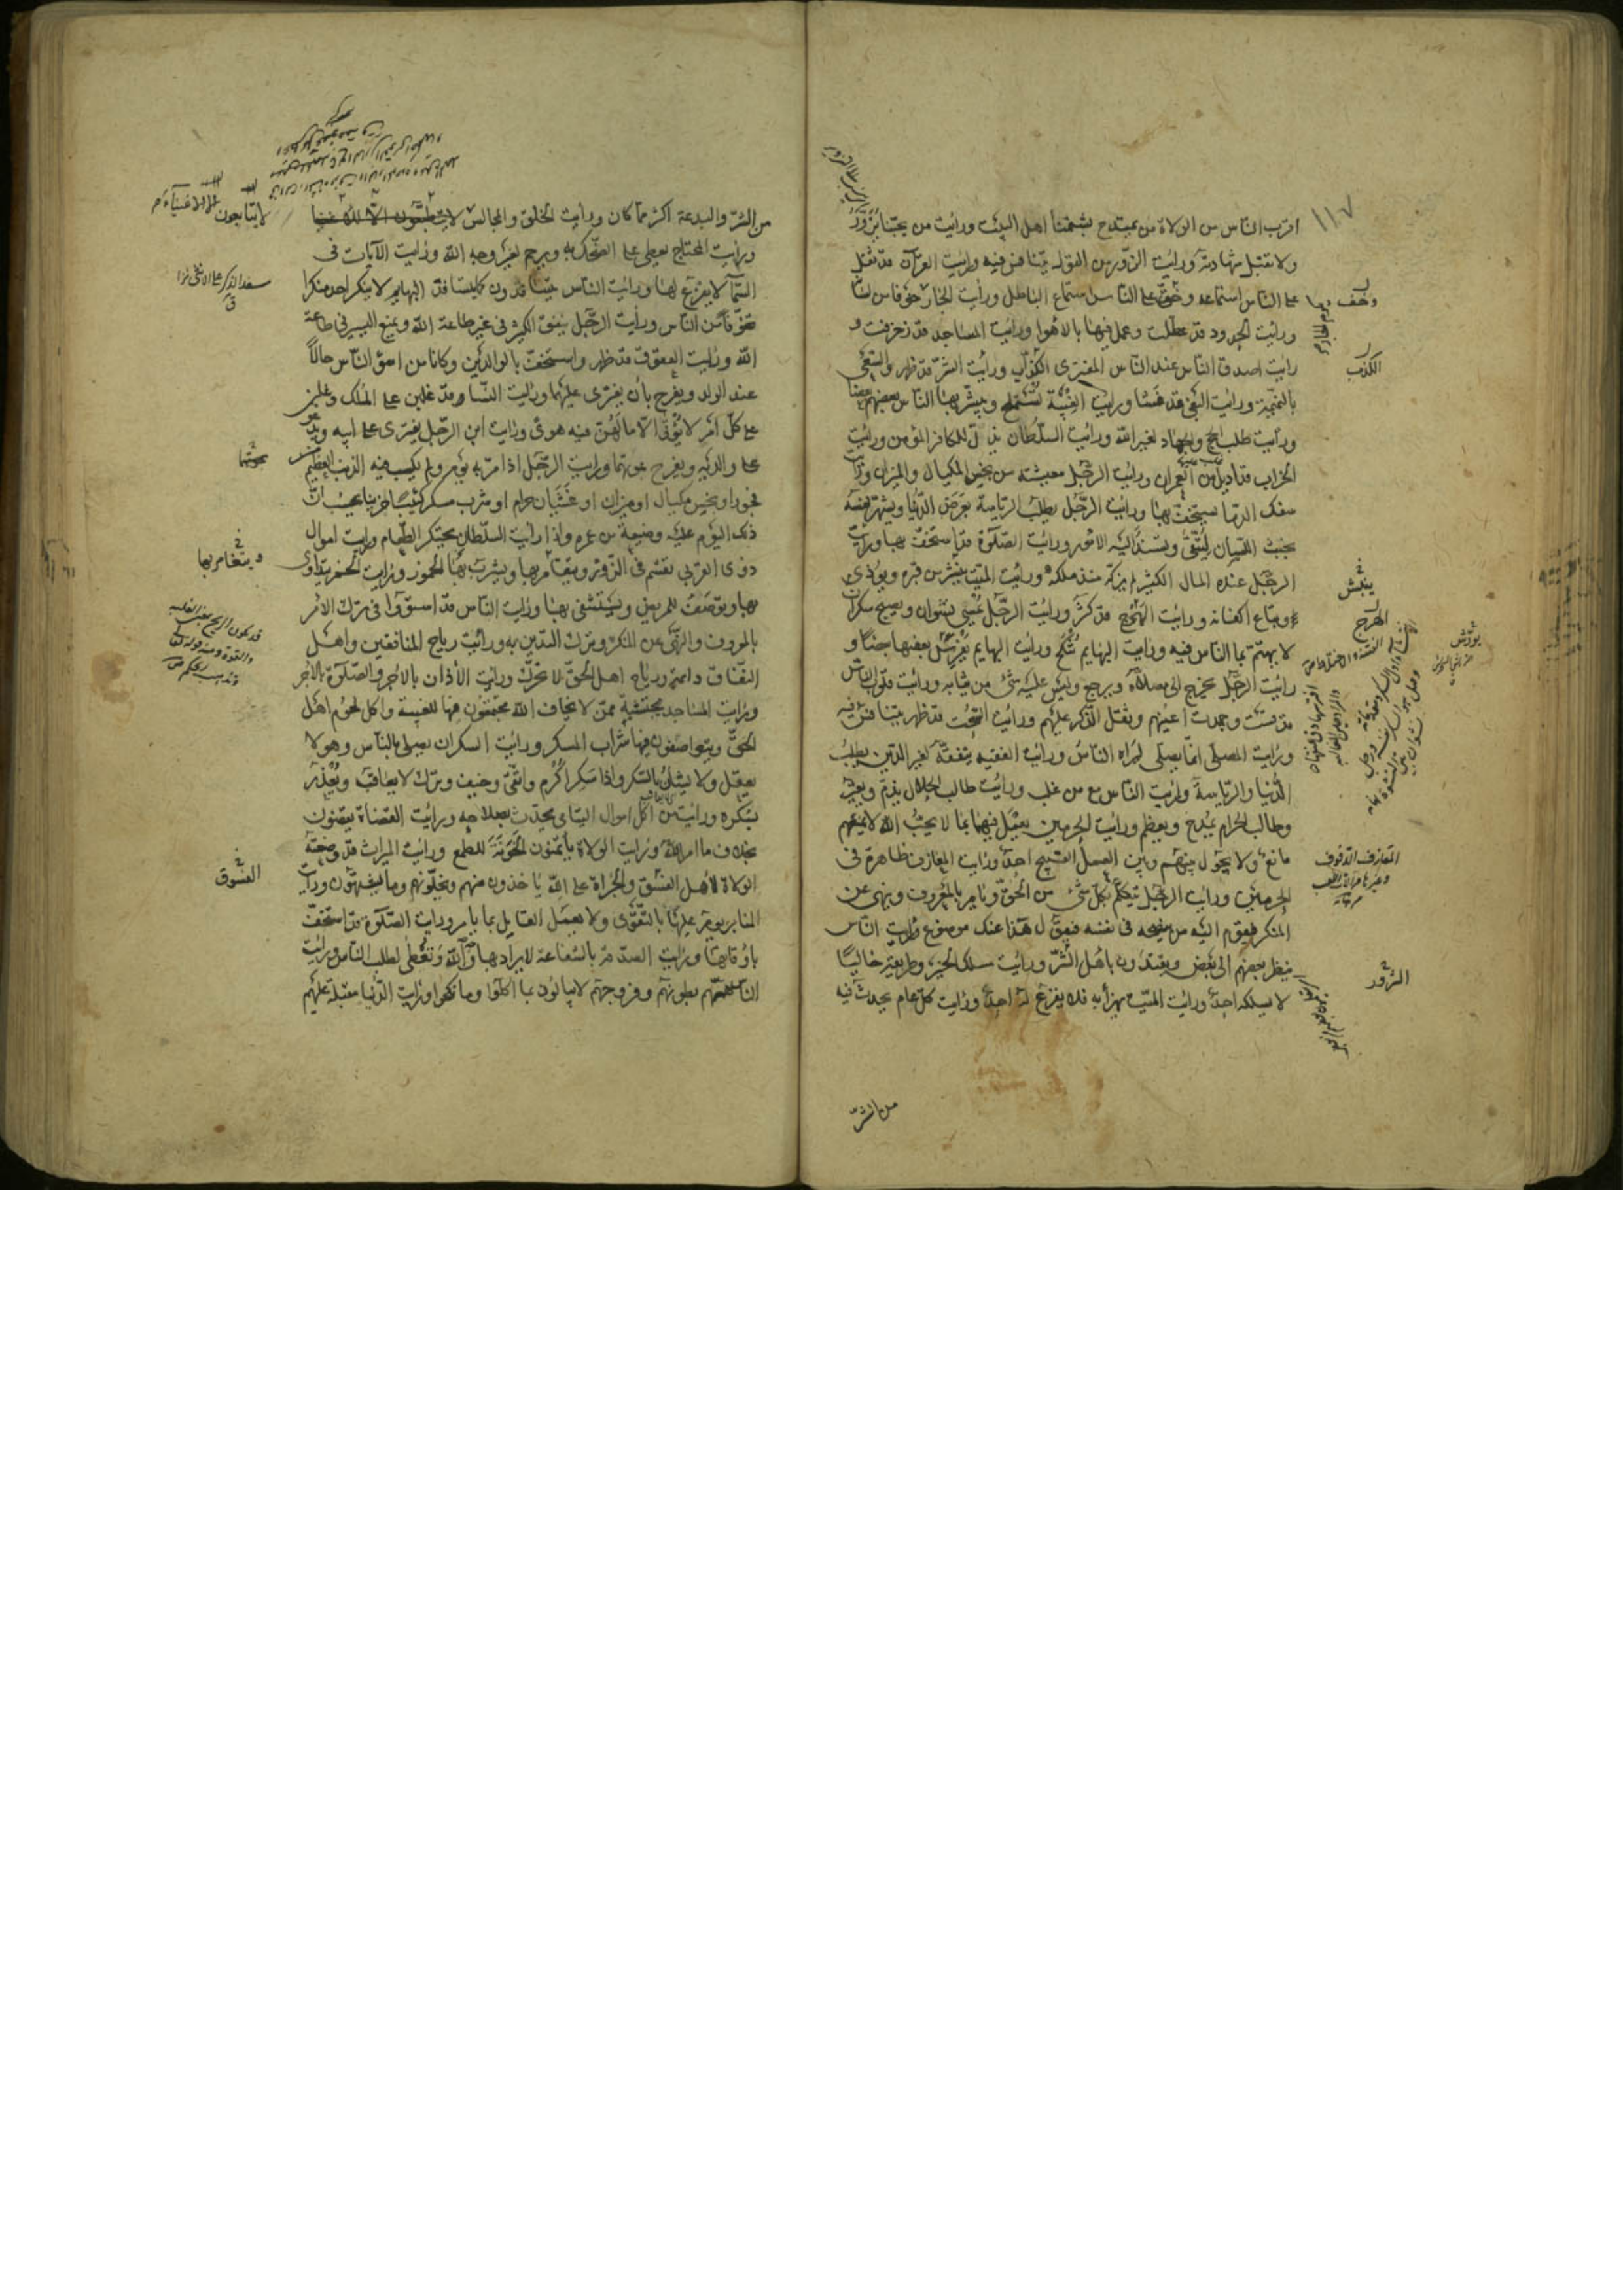 ١١٧
اقرب الناس من الولاة من يمتدح بشتمنا اهل البيت ورايت من يحبنا يزوّر
ولا تقبل شهادته ورايت الزور من القول يتنافس فيه ورايت القرآن قد ثقل
على الناس استماعه وخفّ على الناس استماع الباطل ورايت الجار
ورايت الحدود قد عطّلت وعمل فيها بالاهواء ورايت المساجد قد زخرفت و
رايت اصدق الناس عند الناس المفترى الكذّاب ورايت الشرّ قد ظهر والسعى
بالنميمة ورايت البغى قد فشا ورايت الغيبة تستملح ويبشّر بها الناس بعضهم بعضا
ورايت طلب الحج والجهاد لغير الله ورايت السلطان يذلّ للكافر المؤمن ورايت
الخراب قد اديل من العمران ورايت الرجل معيشته من بخس المكيال والميزان ورايت
سفك الدما يستخفّ بها ورايت الرجل يطلب الرياسة بعرض الدنيا ويشهر نفسه
بخبث اللسان ليتّقى ويسند اليه الامور ورايت الصلوة قد استخفّ بها ورايت
الرجل عنده المال الكثير لم يزكّه منذ ملكه ورايت الميّت ينبش من قبره ويؤذى
ويباع اكفانه ورايت الهرج قد كثر ورايت الرجل يمسى نشوان ويصبح سكران
لا يهتم بما الناس فيه ورايت البهايم تنكح ورايت البهايم يفرس بعضها بعضا و
رايت الرجل يخرج الى مصلاه ويرجع وليس عليه شئ من ثيابه ورايت قلوب الناس
قد قست وجمدت اعينهم وثقل الذكر عليهم ورايت السحت قد ظهر يتنافس فيه
ورايت المصلّى انما يصلّى ليراه الناس ورايت الفقيه يتفقّه لغير الدين يطلب
الدنيا والرياسة ورايت الناس مع من غلب ورايت طالب الحلال يذمّ ويعيّر
وطالب الحرام يمدح ويعظم ورايت الحرمين يعمل فيهما بما لا يحبّ الله لا يمنعهم
مانع ولا يحول بينهم وبين العمل القبيح احد ورايت المعازف ظاهرة فى
الحرمين ورايت الرجل يتكلم بكل شئ من الحق ويامر بالمعروف وينهى عن
المنكر فيقوم اليه من ينصحه فى نفسه فيقول هذا عنك موضوع ورايت الناس
ينظر بعضهم الى بعض ويقتدون باهل الشرّ ورايت مسلك الخير وطريقه خاليا
لا يسلكه احد ورايت الميّت يهزأ به فلا يفزع له احد ورايت كل عام يحدث فيه
وخف
الكذب
ينبش
الهرج
المعازف الدفوف
من الشرّ
من الشرّ والبدعة اكثر مما كان ورايت الخلق والمجالس
لا يتابعون الا الاغنياء
ورايت المحتاج يعطى على الضحك به ويرحم لغير وجه الله ورايت الآيات فى
السماء لا يفزع لها ورايت الناس يتسافدون كما يتسافد البهايم لا ينكر احد منكرا
تخوّفا من الناس ورايت الرجل ينفق الكثير فى غير طاعة الله ويمنع اليسير فى طاعة
الله ورايت العقوق قد ظهر واستخفّ بالوالدين وكانا من اسوء الناس حالاً
عند الولد ويفرح بان يفترى عليهما ورايت النساء وقد غلبن على الملك وغلبن
على كل امر لا يؤتى الا ما لهنّ فيه هوى ورايت ابن الرجل يفترى على ابيه ويدعو
على والديه ويفرح بموتهما ورايت الرجل اذا مرّ به يوم ولم يكسب فيه الذنب العظيم
فجور او بخس مكيال او ميزان او غشيان حرام او شرب مسكر كئيبا حزينا يحسب انّ
ذلك اليوم عليه وضيعة من عمره ورايت السلطان يحتكر الطعام ورايت اموال
ذوى القربى تقسم فى الزور ويتقامر بها ويشرب بها الخمور ورايت الخمر يتداوى
بها وتوصف للمريض ويستشفى بها ورايت الناس قد استووا فى ترك الامر
بالمعروف والنهى عن المنكر وترك التدين به ورايت رياح المنافقين واهل
النفاق دائمة ورياح اهل الحق لا تحرّك ورايت الأذان بالاجر والصلوة بالاجر
ورايت المساجد محتشية ممن لا يخاف الله مجتمعون فيها للغيبة واكل لحوم اهل
الحق ويتواصفون فيها شراب المسكر ورايت السكران يصلى بالناس وهو لا
يعقل ولا يشان بالسكر واذا سكر اكرم واتّقى وخيف وترك لا يعاقب ويعذر
بسكره ورايت من اكل اموال اليتامى يحدّث بصلاحه ورايت القضاة يقضون
بخلاف ما امر الله ورايت الولاة يأتمنون الخونة للطمع ورايت الميراث قد وضعته
الولاة لاهل الفسق والجرأة على الله ياخذون منهم ويخلّونهم وما يشتهون ورايت
المنابر يؤمر عليها بالتقوى ولا يعمل القايل بما يامر ورايت الصلوة قد استخفّ
باوقاتها ورايت الصدقة بالشفاعة لا يراد بها وجه الله وتعطى لطلب الناس ورايت
الناس همّهم بطونهم وفروجهم لا يبالون بما اكلوا وما نكحوا ورايت الدنيا مقبلة عليهم
ويتقامر بها
الفسوق